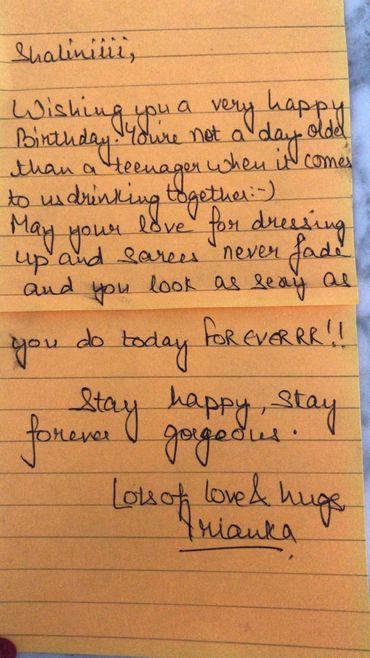 Shaliniiii,
Wishing you a very happy
Birthday. You're not a day older
than a teenager when it comes
to us drinking together :-)
May your love for dressing
up and sarees never fade
and you look as sexy as
you do today FOREVERRR!!
Stay happy, stay
forever gorgeous.
Lots of love & hugs
Prianka